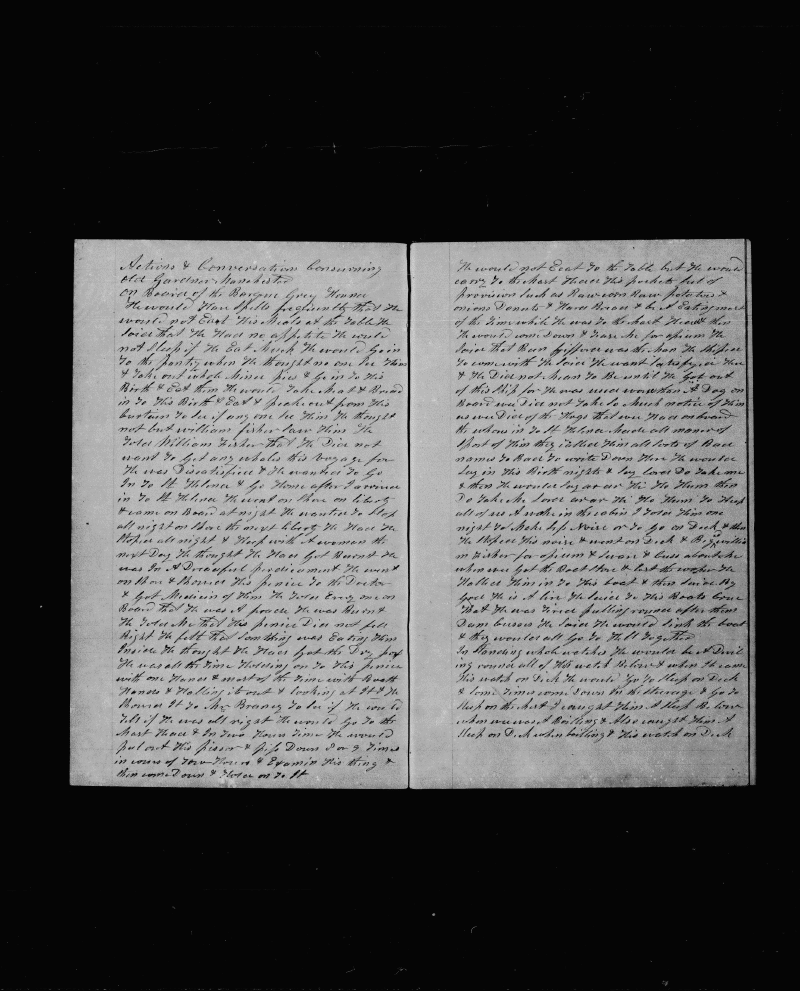 Actions & Conversation Consurning
Old Gardner Manchester
On Board of the Barque Grey Hound
He would Have spells frequently that He
would not Eat His Meals at the Table He
Saide that He Had no appetite He would
not sleep if He Eat Much He would Go in
To the pantry when He thought no one See Him
& Take out whole Mince pies & Go in To His
Birth & Eat them He would Take Meat & Bread
in To His Birth & Eat & peak out from His
Curtain To See if any one See Him He thought
not but William fisher Saw Him He
Tolde William Fisher that He Did not
want To Get any whales this Voyage for
He was Disatisfied & He wanted To Go
In To St Helena & Go Home after I arrived
in To St Helena He went on Shore on liberty
& came on Board at night He wanted To Stop
all night on Shore the next liberty He Had He
Stoped all night & Sleep with A woman the
next Day He thought He Had Got Burnt He
was In A Dreadful predicament He went
on Shore & Showed His penice To the Docter
& Got Medicin of Him He Tolde Every one on
Board that He was A power He was Burnt
He Tolde Me that His penice Did not feel
Right He felt that Something was Eating Him
Inside He thought He Had Got the Dry pox
He was all the Time Holding on To His penice
with one Hand & most of the Time with Booth
Hands & Halling it out & looking at It & He
Showed It To Mr Brandy To See if He could
Tell if He was all right He would Go To the
Mast Head & In Two Hours Time He would
pul out His pisser & piss Down 8 or 9 Times
in cours of Tow Hours & Examin His thing &
then come Down & Holde on To It
He would not Eeat To the Table but He would
carry To the Mast Head His pockets full of
provision Such as Raw corn Raw potatoes &
onions Donuts & Hard Bread & be A Eating most
of the Time while He was To the Mast Head & then
He would come Down & Tease Me for opium He
Saide that Ben was the Man He Shiped
To come with He Saide He want Satesfyed Here
& He Did not Mean To Be until He Got out
of this Ship for He was used worse than A Dog on
Board we Did not Take So Much notice of Him
as we Did of the Hogs that we Had on board
the whom in To St Helena Made all manor of
Sport of Him they Called Him all Sorts of Bad
names To Bad To write Down Here He would
lay in His Birth nights & Say lord Do Take me
& then He would Say ar ar He Ho Hum then
Do Take Me lord ar ar He Ho Hum To Keep
all of us A wake in the cabin I Tolde Him one
night To Make less Noise or To Go on Deck & then
He Stoped His noise & went on Deck & Beged willia
m Fisher for opium & Swair & Cuss about the
when we Got the Boat Stove & lost the He
Halled Him in To His boat & then Saide By
God He is A live He Saide To His Boats Crue
That He was Tired pulling round after them
Dam He Saide He would Sink the boat
& they would all Go To Hell Together
In Standing which watches He would be A Devil
ing round all of His watch Below & when It came
His watch on Deck He would Go To Sleep on Deck
& Some Times come Down In the Steerage & Go To
Sleep on the I caught Him A Sleep Be low
when we was A Boiling & Also caught Him A
Sleep on Deck when boiling & His watch on Deck